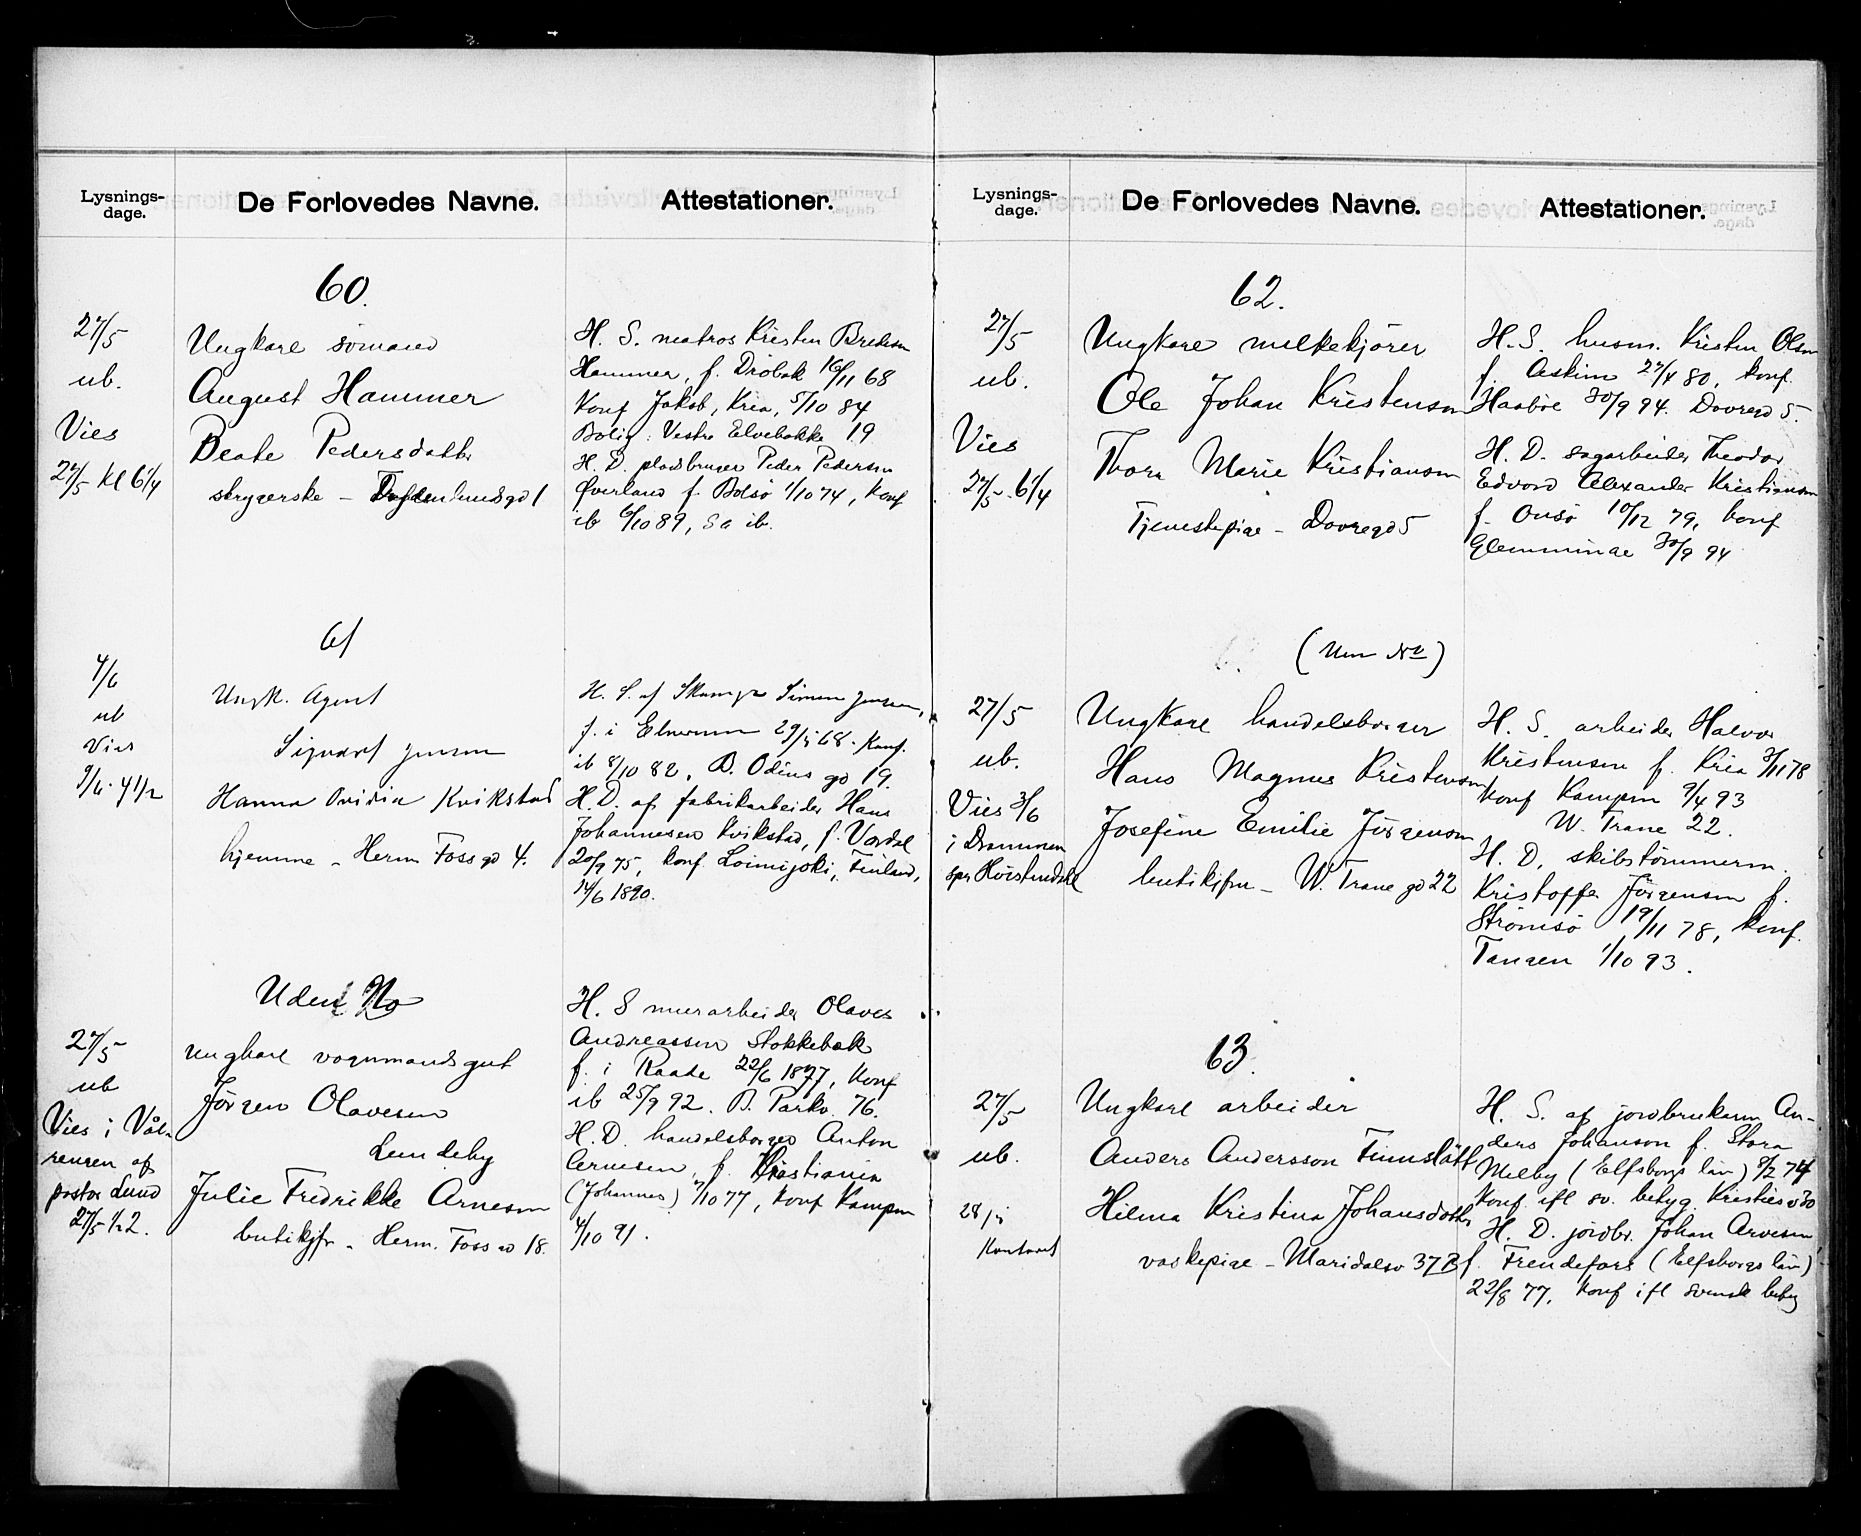 Lysnings-
dage.
De Forlovedes Navne.
Attestationer.
60.
27/5
ub.
Vies
27/5 Kl 6 1/4
Ungkarl sömand
August Hammer
Beate Pedersdatter
strygerske – gd 1
H. S. matros Kristen
Hammer, f. Dröbak 16/11 68
Konf Jakob, Kria, 5/10 84
Bolig: Vestre Elvebakke 19
H. D. pladsbruger Peder Pedersen
Överland f. Bolsö 1/10 74, Konf
ib 6/10 89, Sa ib.
61
4/6
ub
Vies
9/6. 4 1/2
Ungk. Agent
Sigvart Jensen
Hanna Ovidia Kvikstad
hjemme – Herm Foss gd 4.
H. S. af Simen Jensen,
f. i Elverum 29/5 68. Konf.
ib 8/10 82, B. Odins gd 19.
H. D. af fabrikarbeider Hans
Johannesen Kvikstad, f. Verdal
20/9 75, Konf. Loimijoki, Finland,
14/6 1890.
Uden No
27/5
ub
Vies i Vål-
rengen af
pastor Lund
27/5 1/2 2.
ungkarl vognmandsgut
Jörgen Olavesen
Lundeby
Julie Fredrikke Arnesen
butikjfr – Herm. Foss gd 18.
H. S murarbeider Olaves
Andreassen Stokkebæk
f. i Raade 22/6 1877, Konf
ib 25/9 92. B. Parkv. 76.
H. D. handelsborger Anton
Arnesen, f. Kristiania
(Johannes) 7/10 77, Konf Kampen
4/10 91.
Lysnings-
dage.
De Forlovedes Navne.
Attestationer.
62.
27/5
ub.
Vies
27/5. 6 1/4
Ungkarl melkekjörer
Ole Johan Kristensen
Thora Marie Kristiansen
Tjenestepige – Dovregd 5
H. S. husm. Kristen Olsen
f. Askim 27/4 80, Konf.
Haaböl 30/9 94. Dovregd 5.
H. D. sagarbeider Theodor
Edvard Alexander Kristiansen
f. Onsö 10/12 79, konf
Glemminge 30/9 94
(Uden No)
27/5
ub.
Vies 3/6
i Drammen
Ungkarl handelsborger
Hans Magnus Kristensen
Josefine Emilie Jörgensen
butikjfru – W. Trane gd 22
H. S. arbeider Halvor
Kristensen f. Kria 3/11 78
Konf Kampen 9/4 93
W. Trane 22.
H. D. skibstömmerm.
Kristoffer Jörgensen f.
Strömsö 19/11 78, Konf.
Tangen 1/10 93.
63.
27/5
ub.
28/5
Kontoret
Ungkarl arbeider
Anders Andersson Finnslätt
Hilma Kristina Johansdotter
vaskepige – Maridalsv 37 B
H. S. af jordbrukaren An-
ders Johanson f. Stora
Melby (Elfsborgs län) 8/2 74
Konf. ifl sv. betyg.
H. D. jordbr. Johan Arvesen
f. Frendefors (Elfsborgs län)
22/8 77, Konf ifl svensk betyg